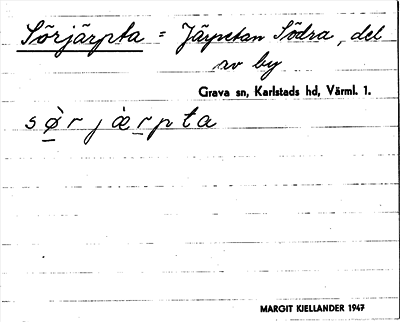 Sörjärpta = Järpetan Södra, del
av by
Grava sn, Karlstads hd, Värml. 1.
sø̀rjæ̀rpta
MARGIT KJELLANDER 1947